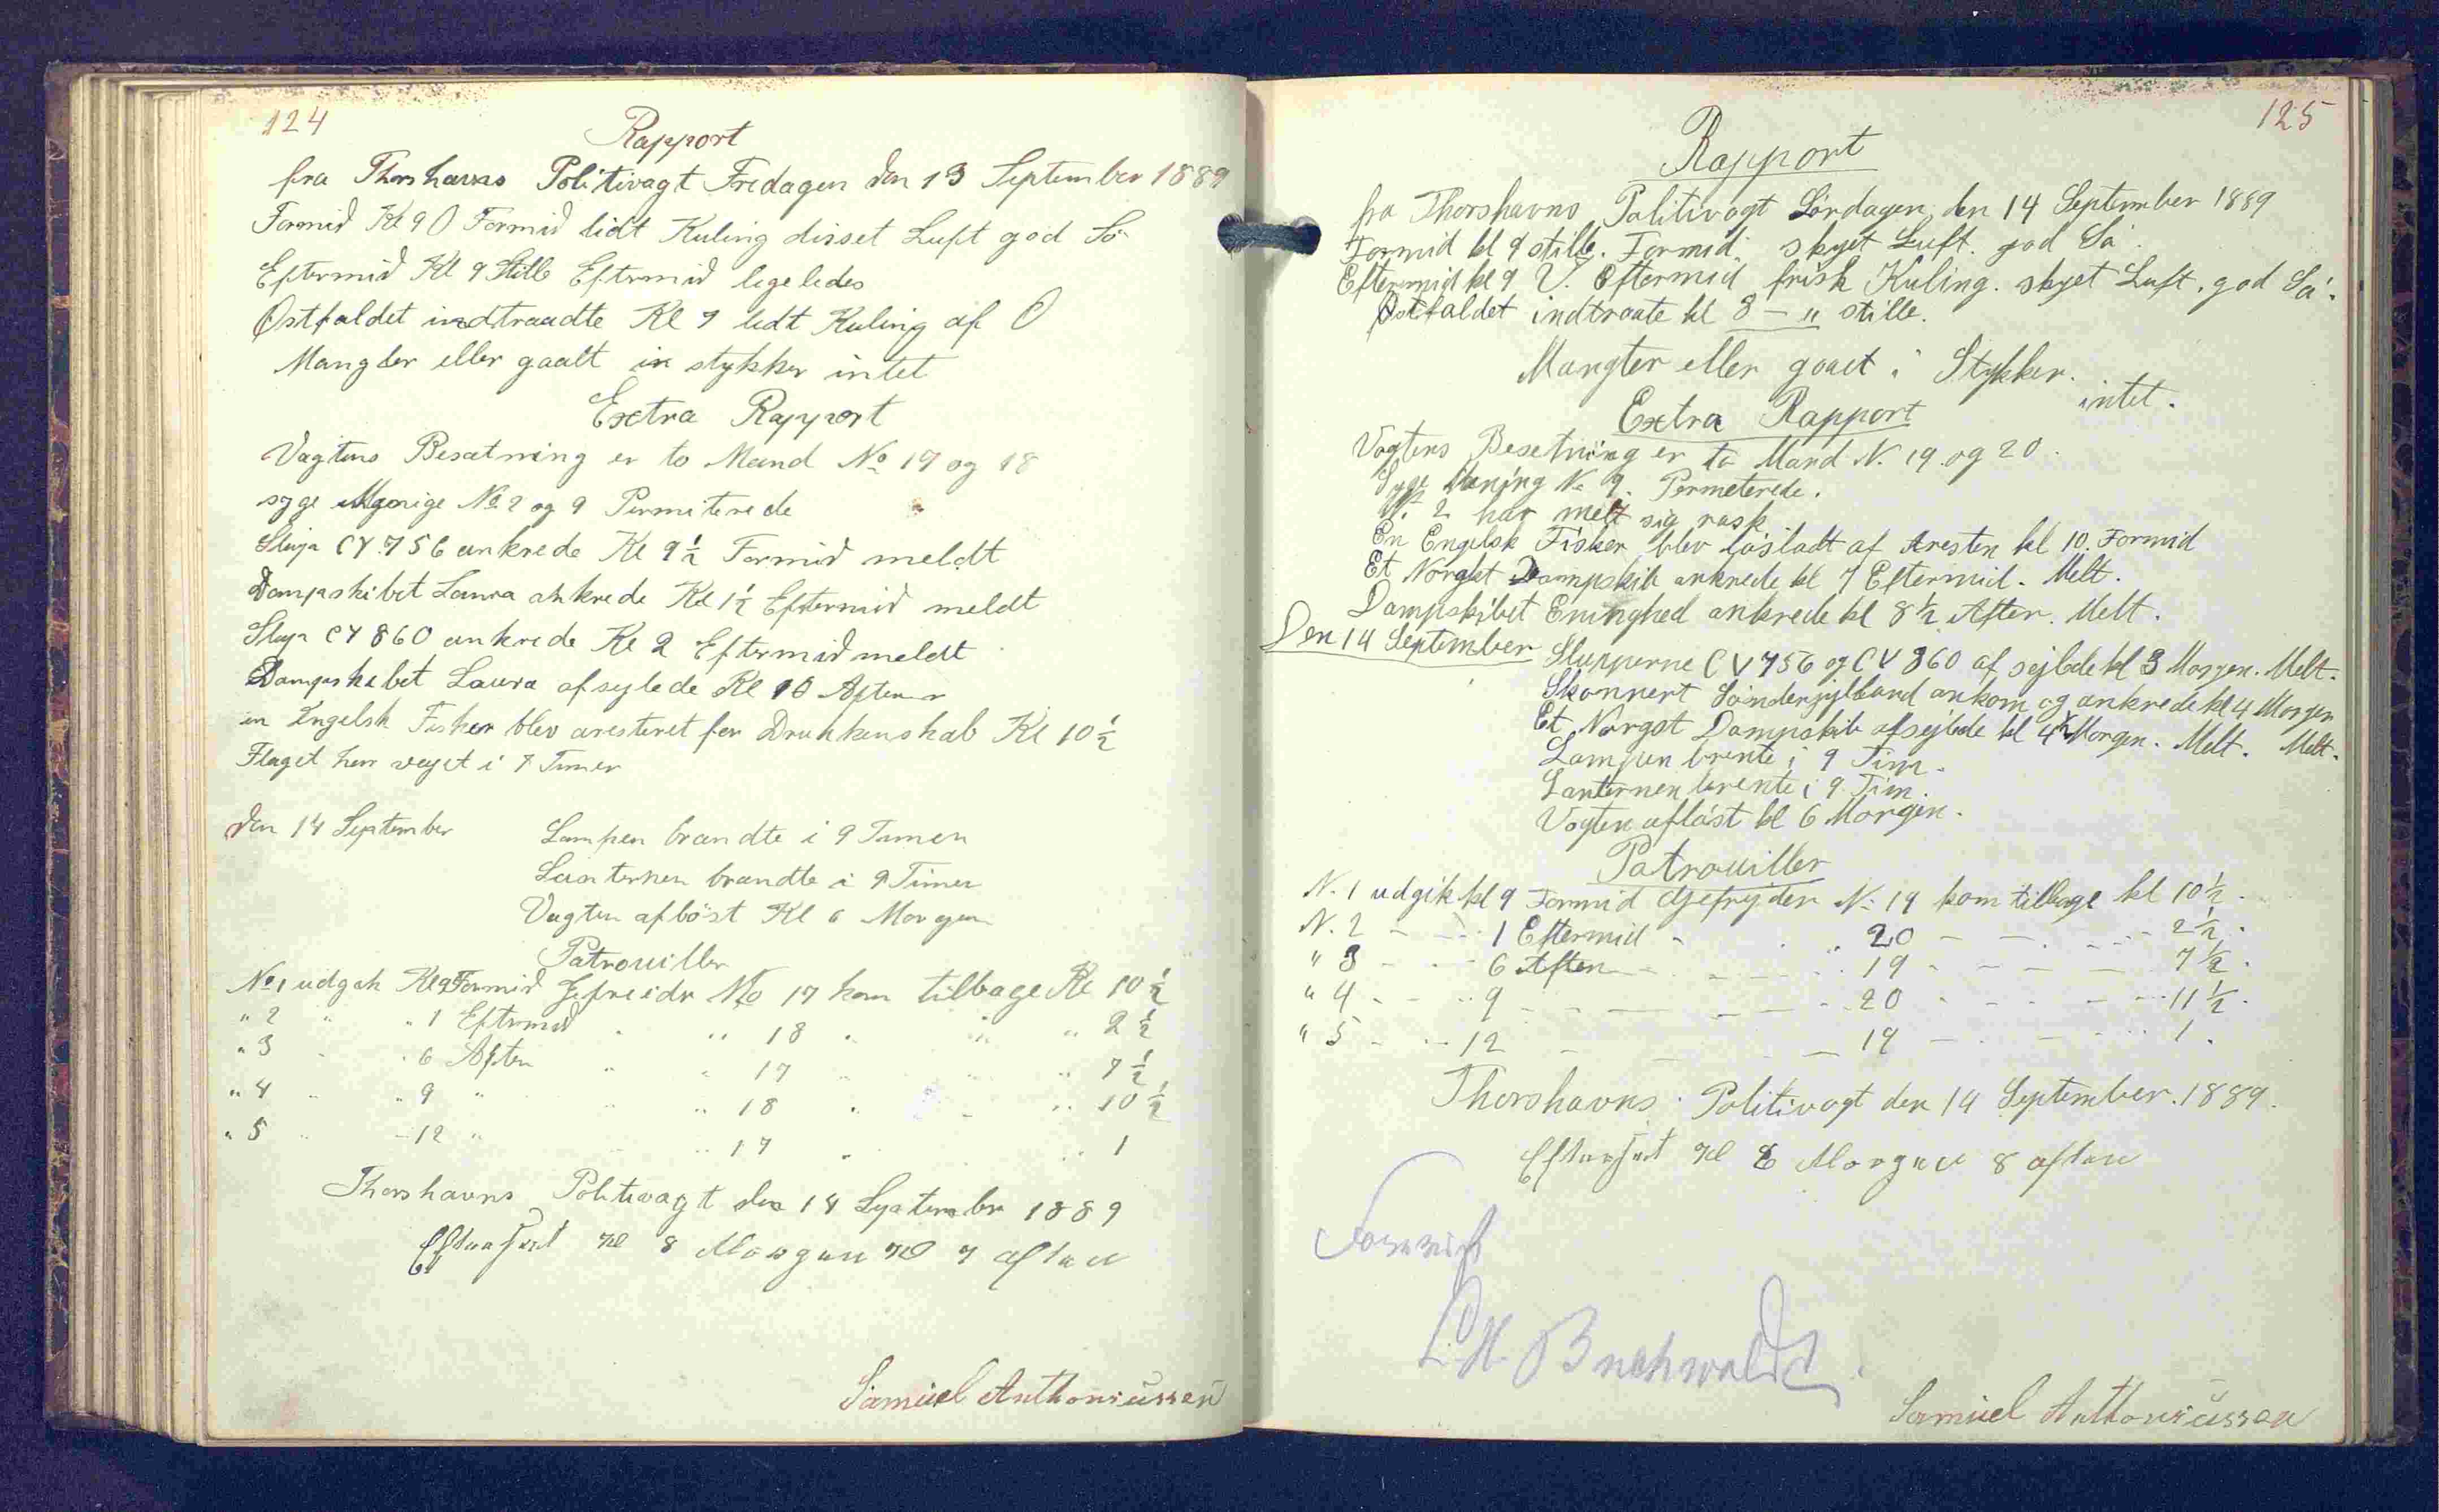 124
Rapport
fra Thorshavns Politivagt Fredagen den 13 September 1889
Formid Kl 9 O Formid lidt Kuling disset Luft god Sö
Eftermid Kl 9 Stille Eftermid ligeledes
Østfaldet indtraadte Kl 7 lidt Kuling af O
Mangler eller gaalt in stykker intet
Extra Rapport
Vagtens Besætning er to Mand No 17 og 18
syge Menige No 2 og 9 Permiterede
Slup CV. 756 ankrede Kl 9 1/2 Formid meldt
Dampskibet Laura ankrede Kl 1 1/2 Eftermid meldt
Slup CV 860 ankrede Kl 2 Eftermid meldt
Dampskibet Laura afsejlede Kl 10 Aften
en Engelsk Fisker blev aresteret for Drukkenskab Kl 10 1/2
Flaget har vajet i 7 Timer
den 14 September Lampen brandte i 9 Timer
Lanternen brandte i 9 Timer
Vagten aflöst Kl 6 Morgen
Patrouiller
No 1 udgik Kl 9 Formid Gefreider No 17 kom tilbage Kl 10 1/2
" 2 " " 1 Eftermid " " 18 " " " 2 1/2
" 3 " " 6 Aften " " 17 " " " 7 1/2
" 4 " " 9 " " " 18 " " " 10 1/2
" 5 " " 12 " " " 17 " " " 1
Thorshavns Politivagt den 14 September 1889
Efterset Kl 8 Morgen Kl 7 aften
Samuel Anthoniussen
125
Rapport
fra Thorshavns Politivagt Lørdagen den 14 September 1889
Formid kl 9 stille. Formid. skyet Luft. god Sö.
Eftermid kl 9 V. Eftermid frisk Kuling. skyet Luft. god Sö.
Østfaldet indtraate kl 8 – " stille.
Mangler eller gaaet i Stykker.
intet.
Extra Rapport
Vagtens Besetning er to Mand N. 19. og 20.
Syge Mening No 9. Permeterede.
N. 2 har melt sig rask
En Engelsk Fisker blev lösladt af Aresten kl 10. Formid
Et Norgst Dampskib ankrede kl 7 Eftermid. Melt.
Dampskibet Eninghed ankrede kl 8 1/2 Aften. Melt.
Den 14 September Slupperne CV 756 og CV 860 af sejlede kl 3 Morgen. Melt.
Skonnert Sönderjylland ankom og ankrede kl 4 Morgen
Melt.
Et Norgst Dampskib afsejlede kl 4 1/2 Morgen. Melt.
Lampen brente i 9 Tim.
Lanternen brente i 9 Tim.
Vagten aflöst kl 6 Morgen.
Patrouiller
N. 1 udgik kl 9 Formid Gjefrejder N. 19 kom tilbage kl 10 1/2.
N. 2 – – 1 Eftermid – " 20 – – – 2 1/2.
" 3 – – 6 Aften – – " 19 – – – 7 1/2.
" 4 – – 9 – – – 20 – – – 11 1/2.
" 5 – – 12 – – – 19 – – – 1.
Thorshavns Politivagt den 14 September. 1889.
Efterset Kl 8 Morgen 8 aften
L. H. Buchwaldt
Samuel Anthoniussen